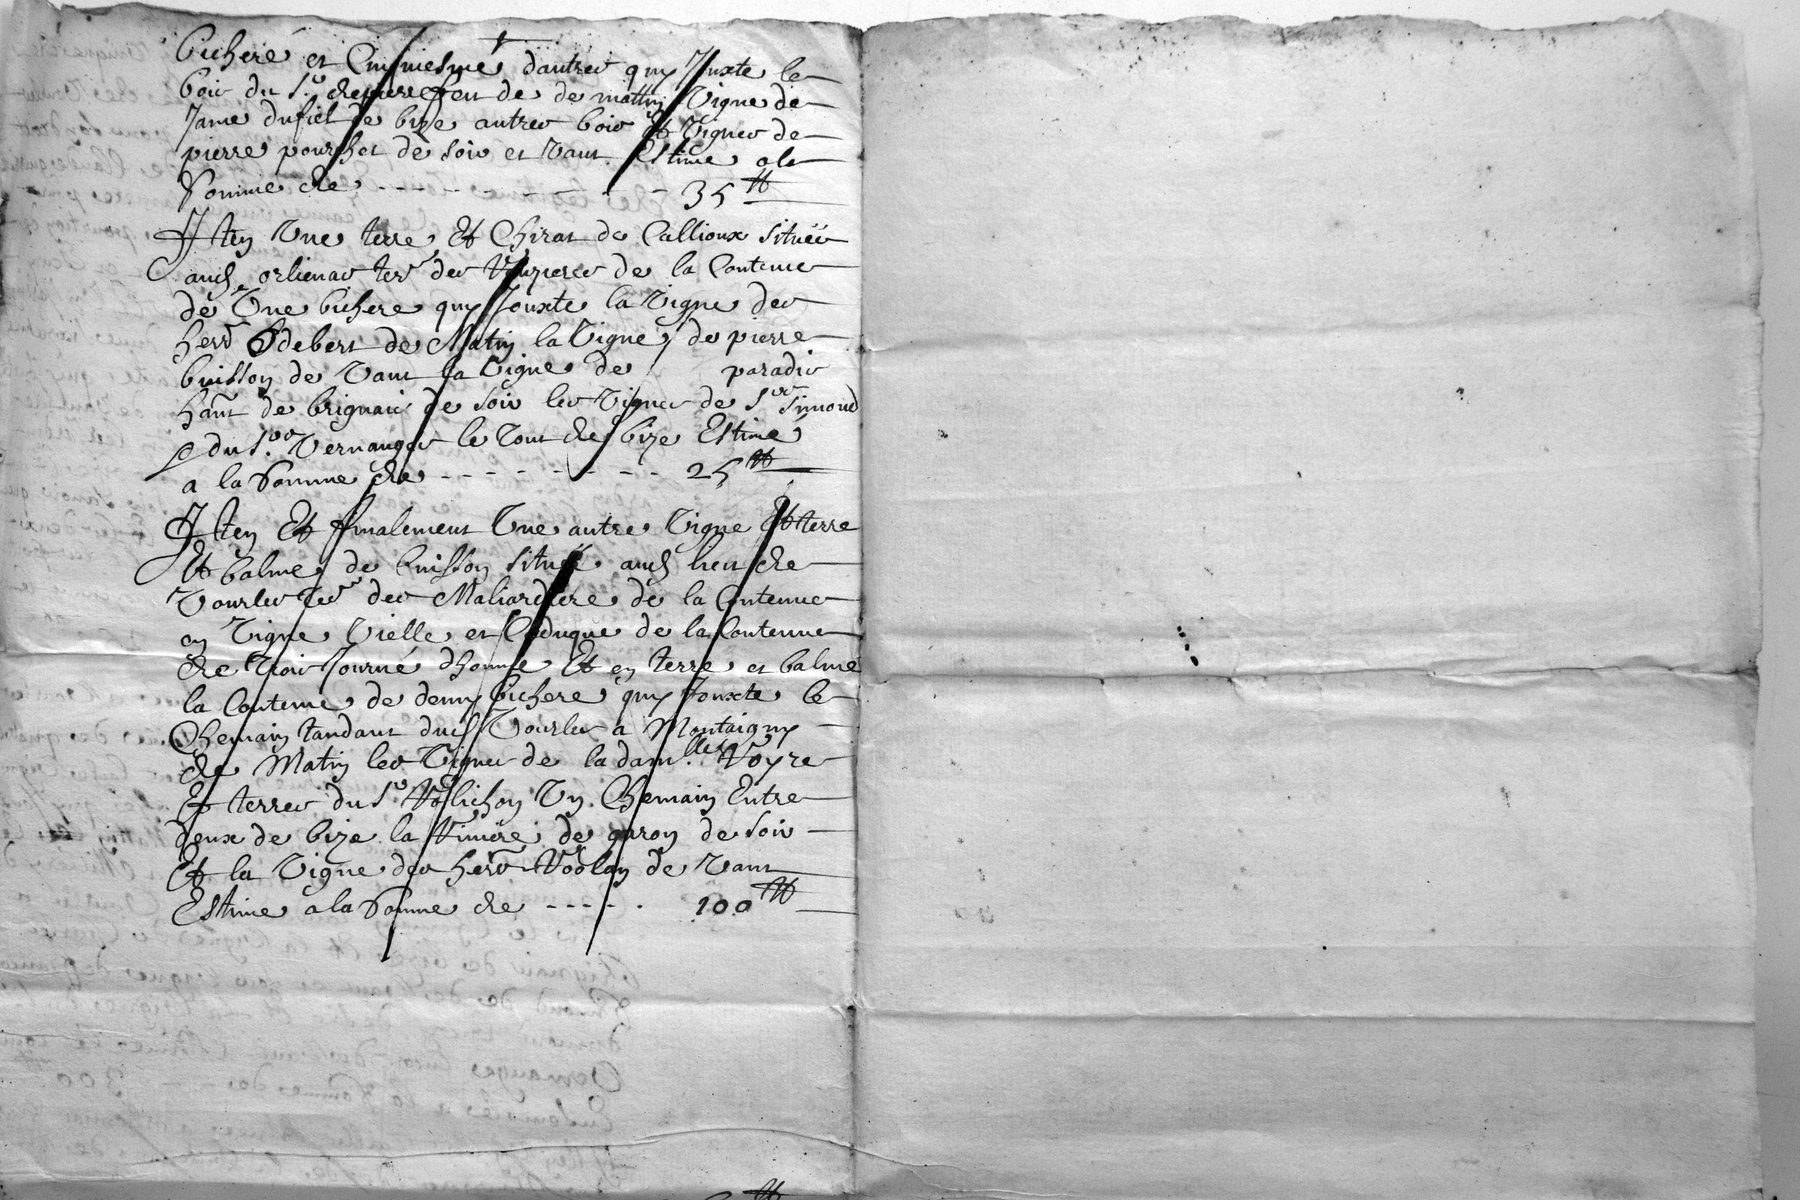 bicheré et cinquiesme d'autre quy Juxte le
bois du Sr. de de mattin Vigne de
Jame dufiel de bize autres bois et Vignes de
pierre pourchet de soir et Vant Estime a la
somme de - - - - - - - - - 35 tt
Item Une terre et Chirat de Callioux située
aud. orlienas ter. des de la Contenue
de Une bichere quy Jouxte la Vigne des
herr Odebert de Matin la Vigne de pierre
buisson de Vant la Vigne de paradis
hant de brignais de soir les Vignes de Sr Simond
& du Sr. Vernanges le tout de bize Estimé
a la somme de - - - - - - - - - 25 tt
Item Et finalement Une autre Vigne et terre
et balme de buisson située aud. lieu de
Vourles ter. des Maliardiere de la Contenue
en Vigne Vielle et Caduque de la Contenue
de trois Journé d'homme Et en terre et balme
la Contenue de demy bichere quy Jouxte le
Chemain tandant dud. Vourles a Montaigny
de Matin les Vignes de la dam.lle Voyre
Et terres du Sr Volichon Un Chemain Entre
deux de bize la Riviere de garon de soir
Et la Vigne des herr Vodolan de Vant
Estime a la somme de - - - - - 100 tt